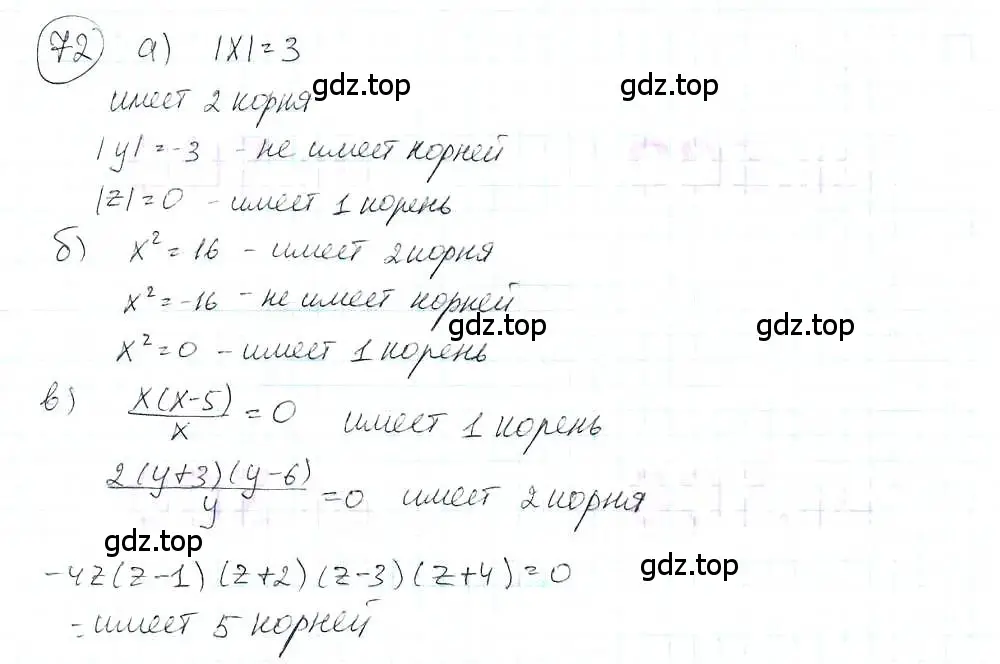 72 а) |x| = 3
gdz.top
имеет 2 корня
gdz.top
|y| = -3 - не имеет корней
|z| = 0 - имеет 1 корень
б) x² = 16 - имеет 2 корня
x² = -16 - не имеет корней
gdz.top
gdz.top
x² = 0 - имеет 1 корень
в) x(x-5)/x = 0 имеет 1 корень
2(y+3)(y-6)/y = 0 имеет 2 корня
gdz.top
gdz.top
-4z(z-1)(z+2)(z-3)(z+4) = 0
- имеет 5 корней